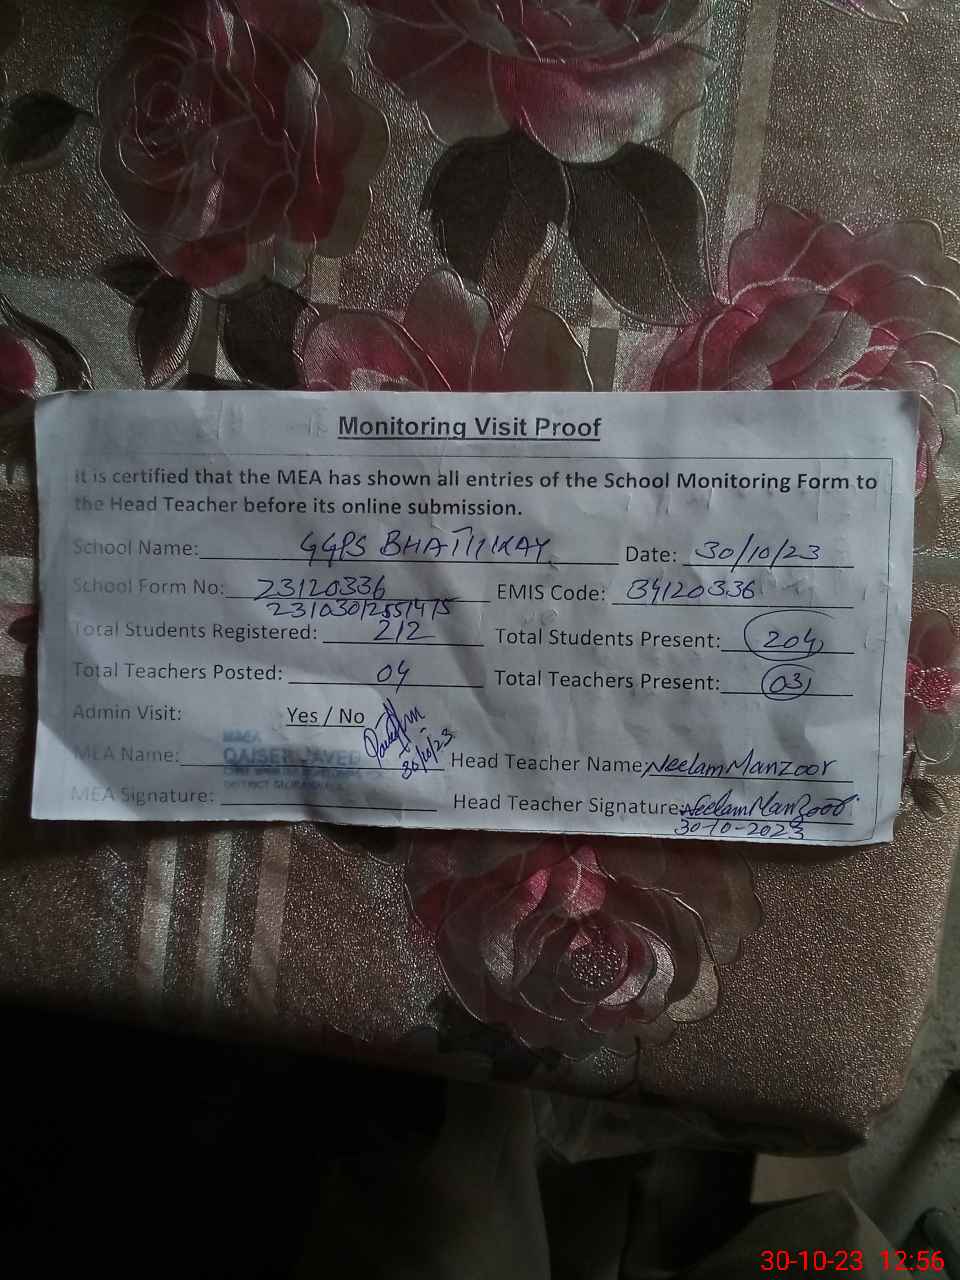 Monitoring Visit Proof
It is certified that the MEA has shown all entries of the School Monitoring Form to
the Head Teacher before its online submission.
School Name: GGPS Date: 30/10/23
School Form No: 23120336 EMIS Code: 34120336
Total Students Registered: 212 Total Students Present: 204
Total Teachers Posted: 04 Total Teachers Present: 03
Admin Visit: Yes / No
30/10/23
MEA Name: QAISER JAVED Head Teacher Name: Neelam Manzoor
MEA Signature: Head Teacher Signature: Neelam Manzoor
30-10-2023
30-10-23 12:56